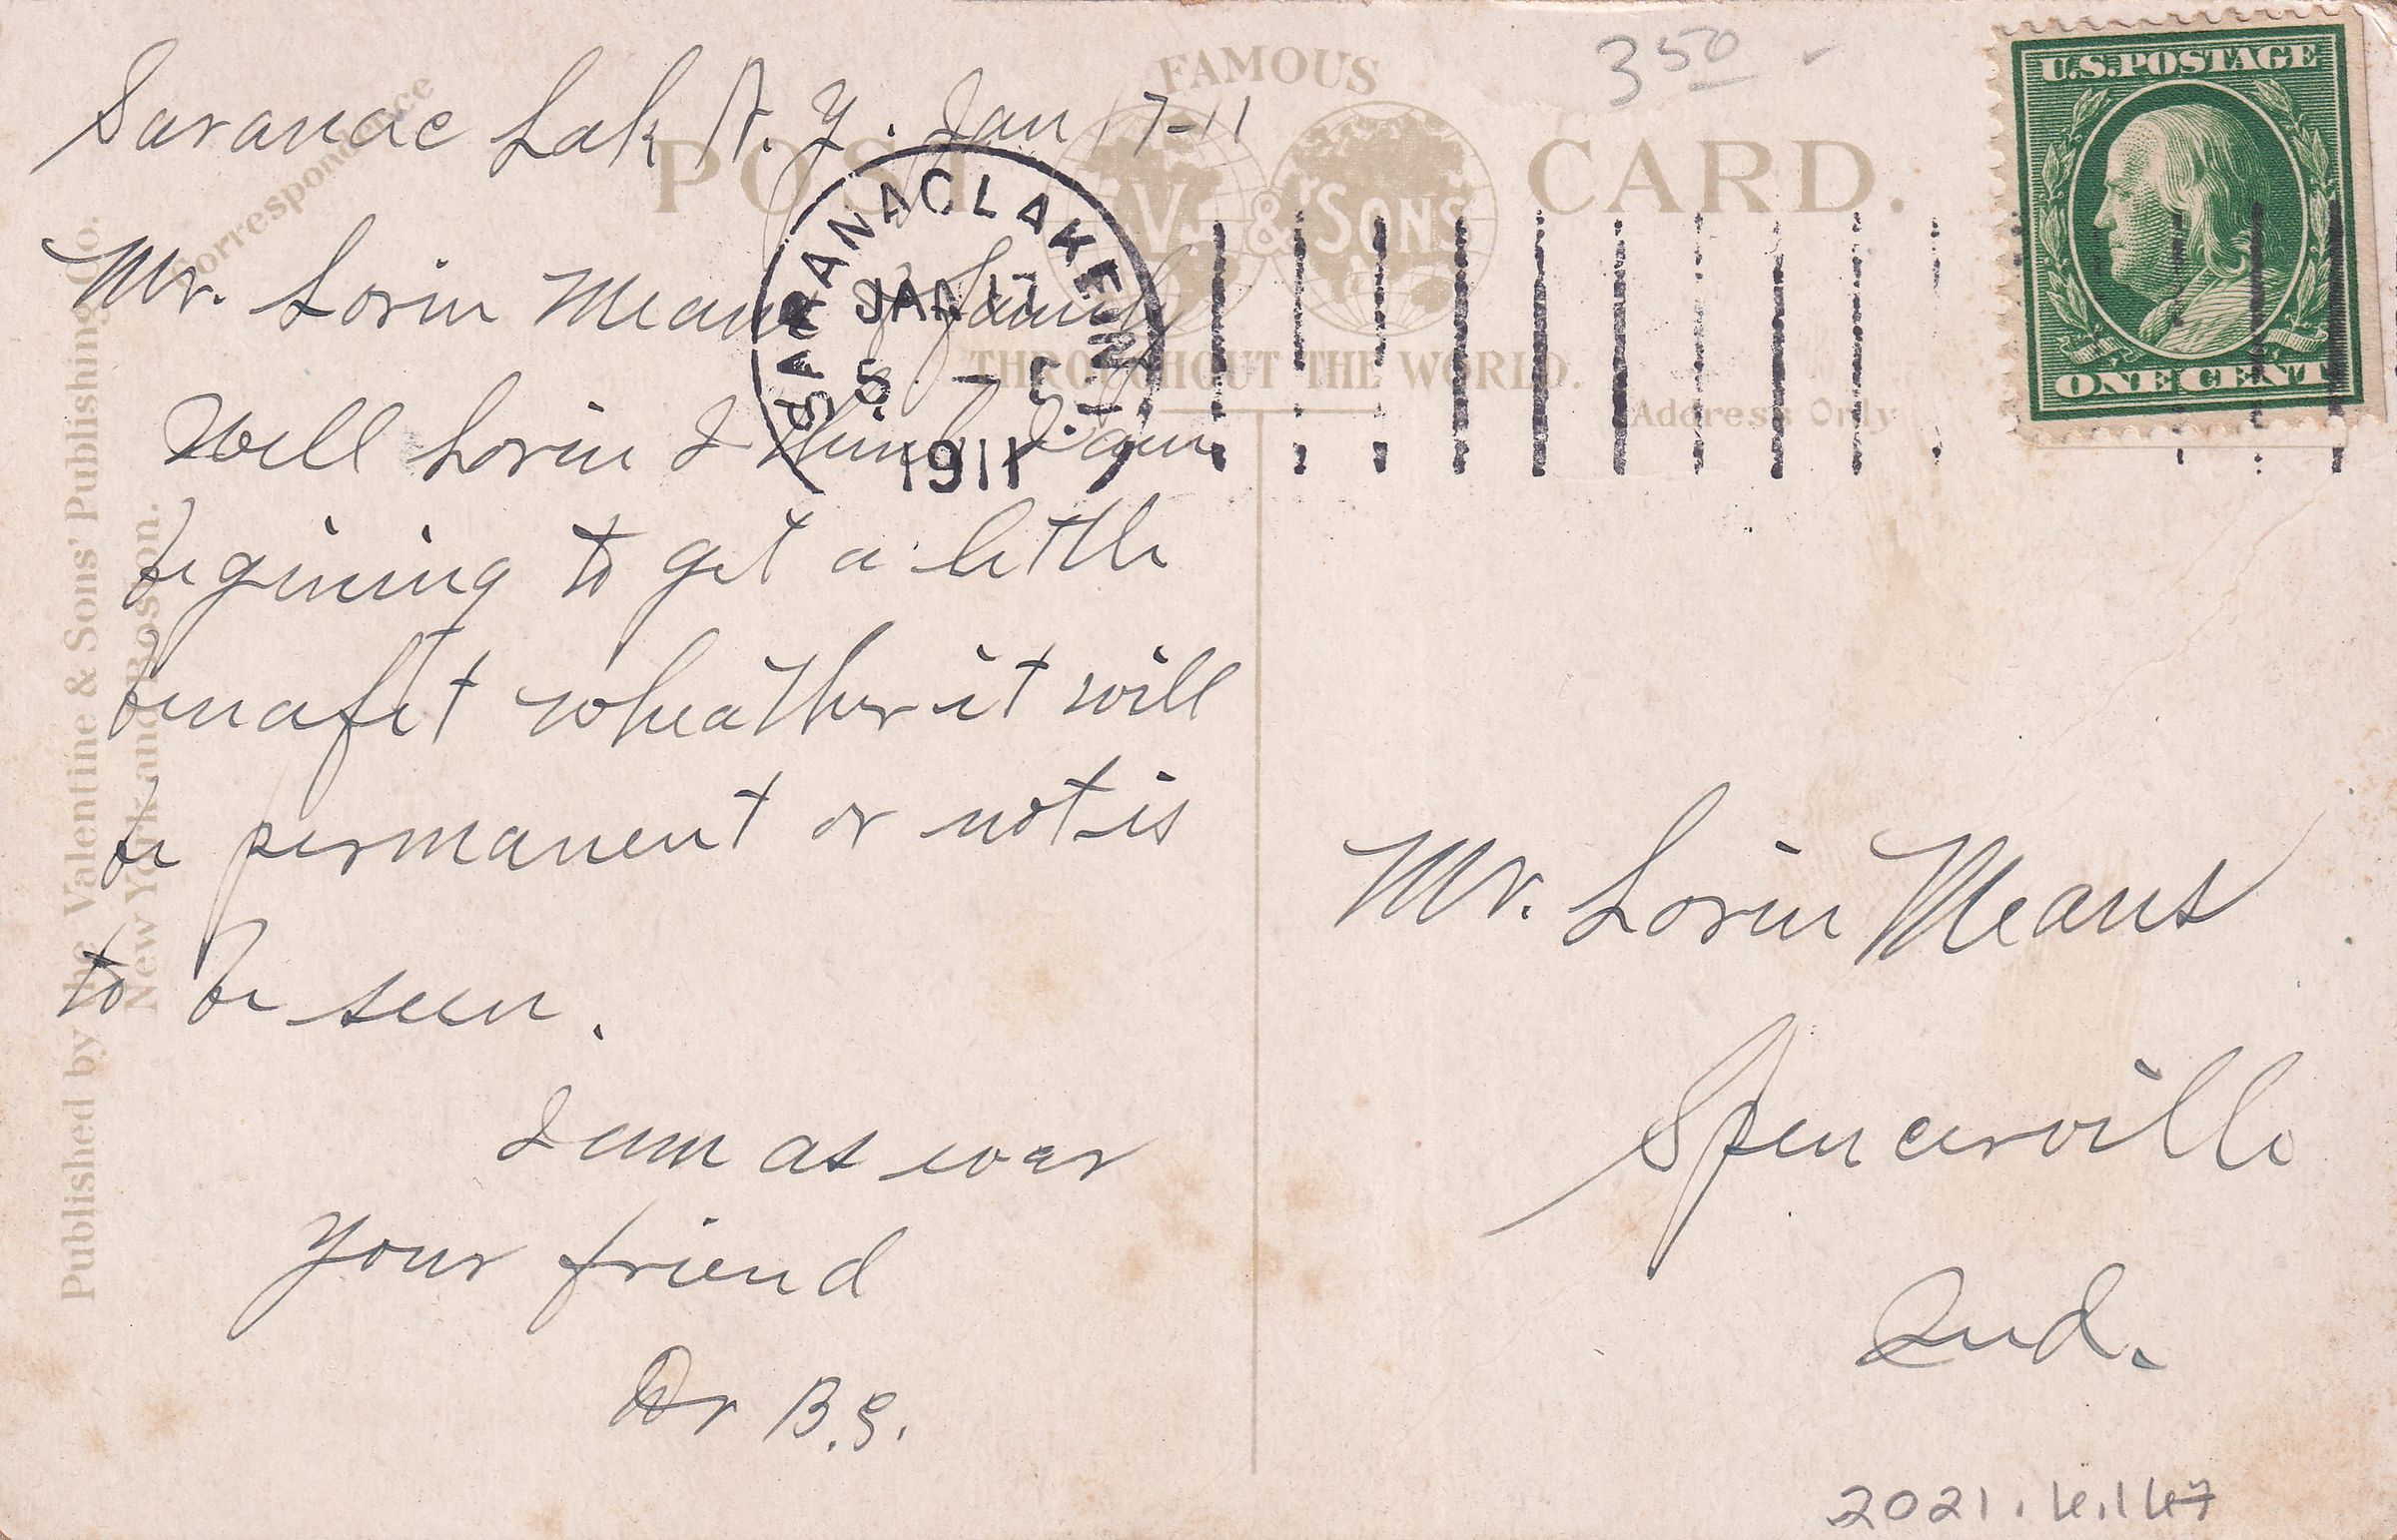 Saranac Lak N.Y. Jan 17-11
Mr. Lorin Means & family
Well Lorin I think I am
begining to get a little
benafit wheather it will
be permanent or not is
to be seen.
I am as ever
Your friend
Dr B.S.
Correspondence
Published by the Valentine & Sons' Publishing Co.
New York and Boston.
FAMOUS
POST CARD.
V. & SONS
THROUGHOUT THE WORLD.
Address Only
SARANAC LAKE N.Y.
JAN 17
5 -
1911
3 50 -
U.S. POSTAGE
ONE CENT
Mr. Lorin Means
Spencerville
Ind.
2021.4.147